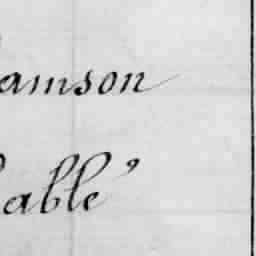 amson
able'